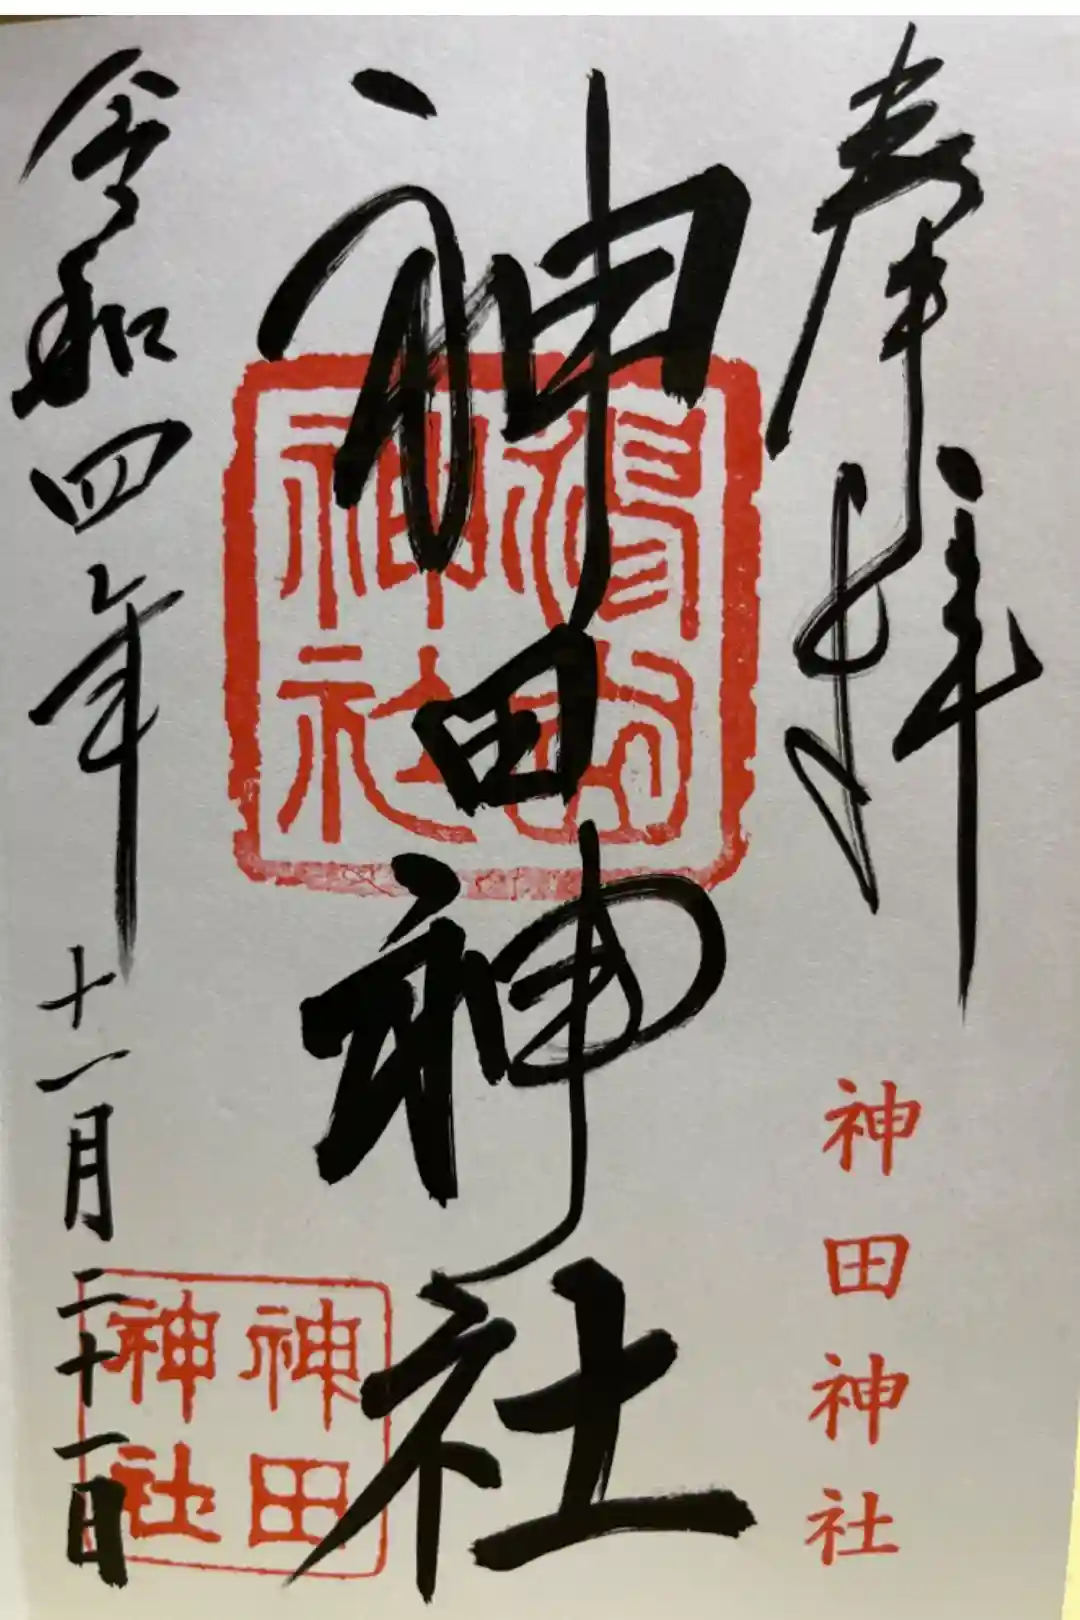 奉拝
神田神社
神田神社
令和四年十一月二十一日
神田
神社
神社